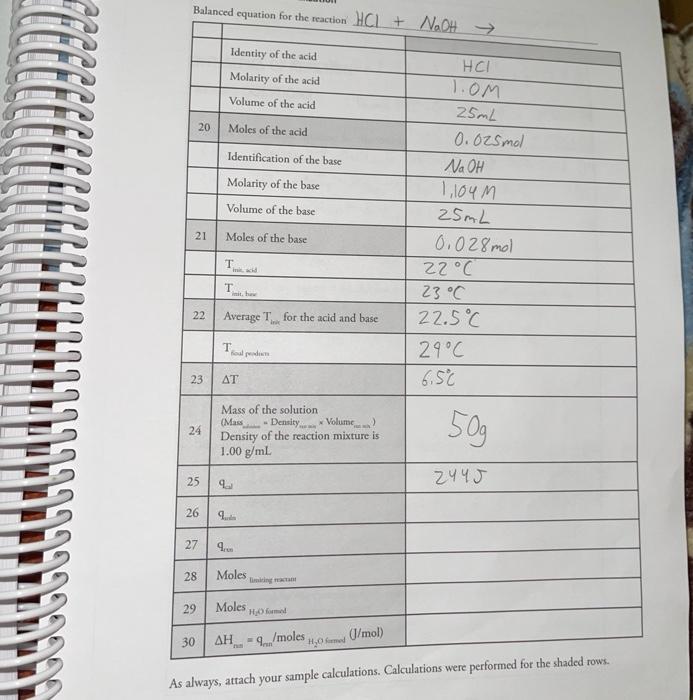 Balanced equation for the reaction HCl + NaOH →
Identity of the acid HCl
Molarity of the acid 1.0M
Volume of the acid 25mL
20 Moles of the acid 0.025mol
Identification of the base NaOH
Molarity of the base 1.104M
Volume of the base 25mL
21 Moles of the base 0.028mol
T init, acid 22°C
T init, base 23°C
22 Average T init for the acid and base 22.5°C
T final products 29°C
23 ΔT 6.5°C
Mass of the solution
(Mass = Density × Volume)
24 Density of the reaction mixture is 50g
1.00 g/mL
25 q cal 244J
26 q soln
27 q rxn
28 Moles limiting reactant
29 Moles H₂O formed
30 ΔH rxn = q rxn/moles H₂O formed (J/mol)
As always, attach your sample calculations. Calculations were performed for the shaded rows.